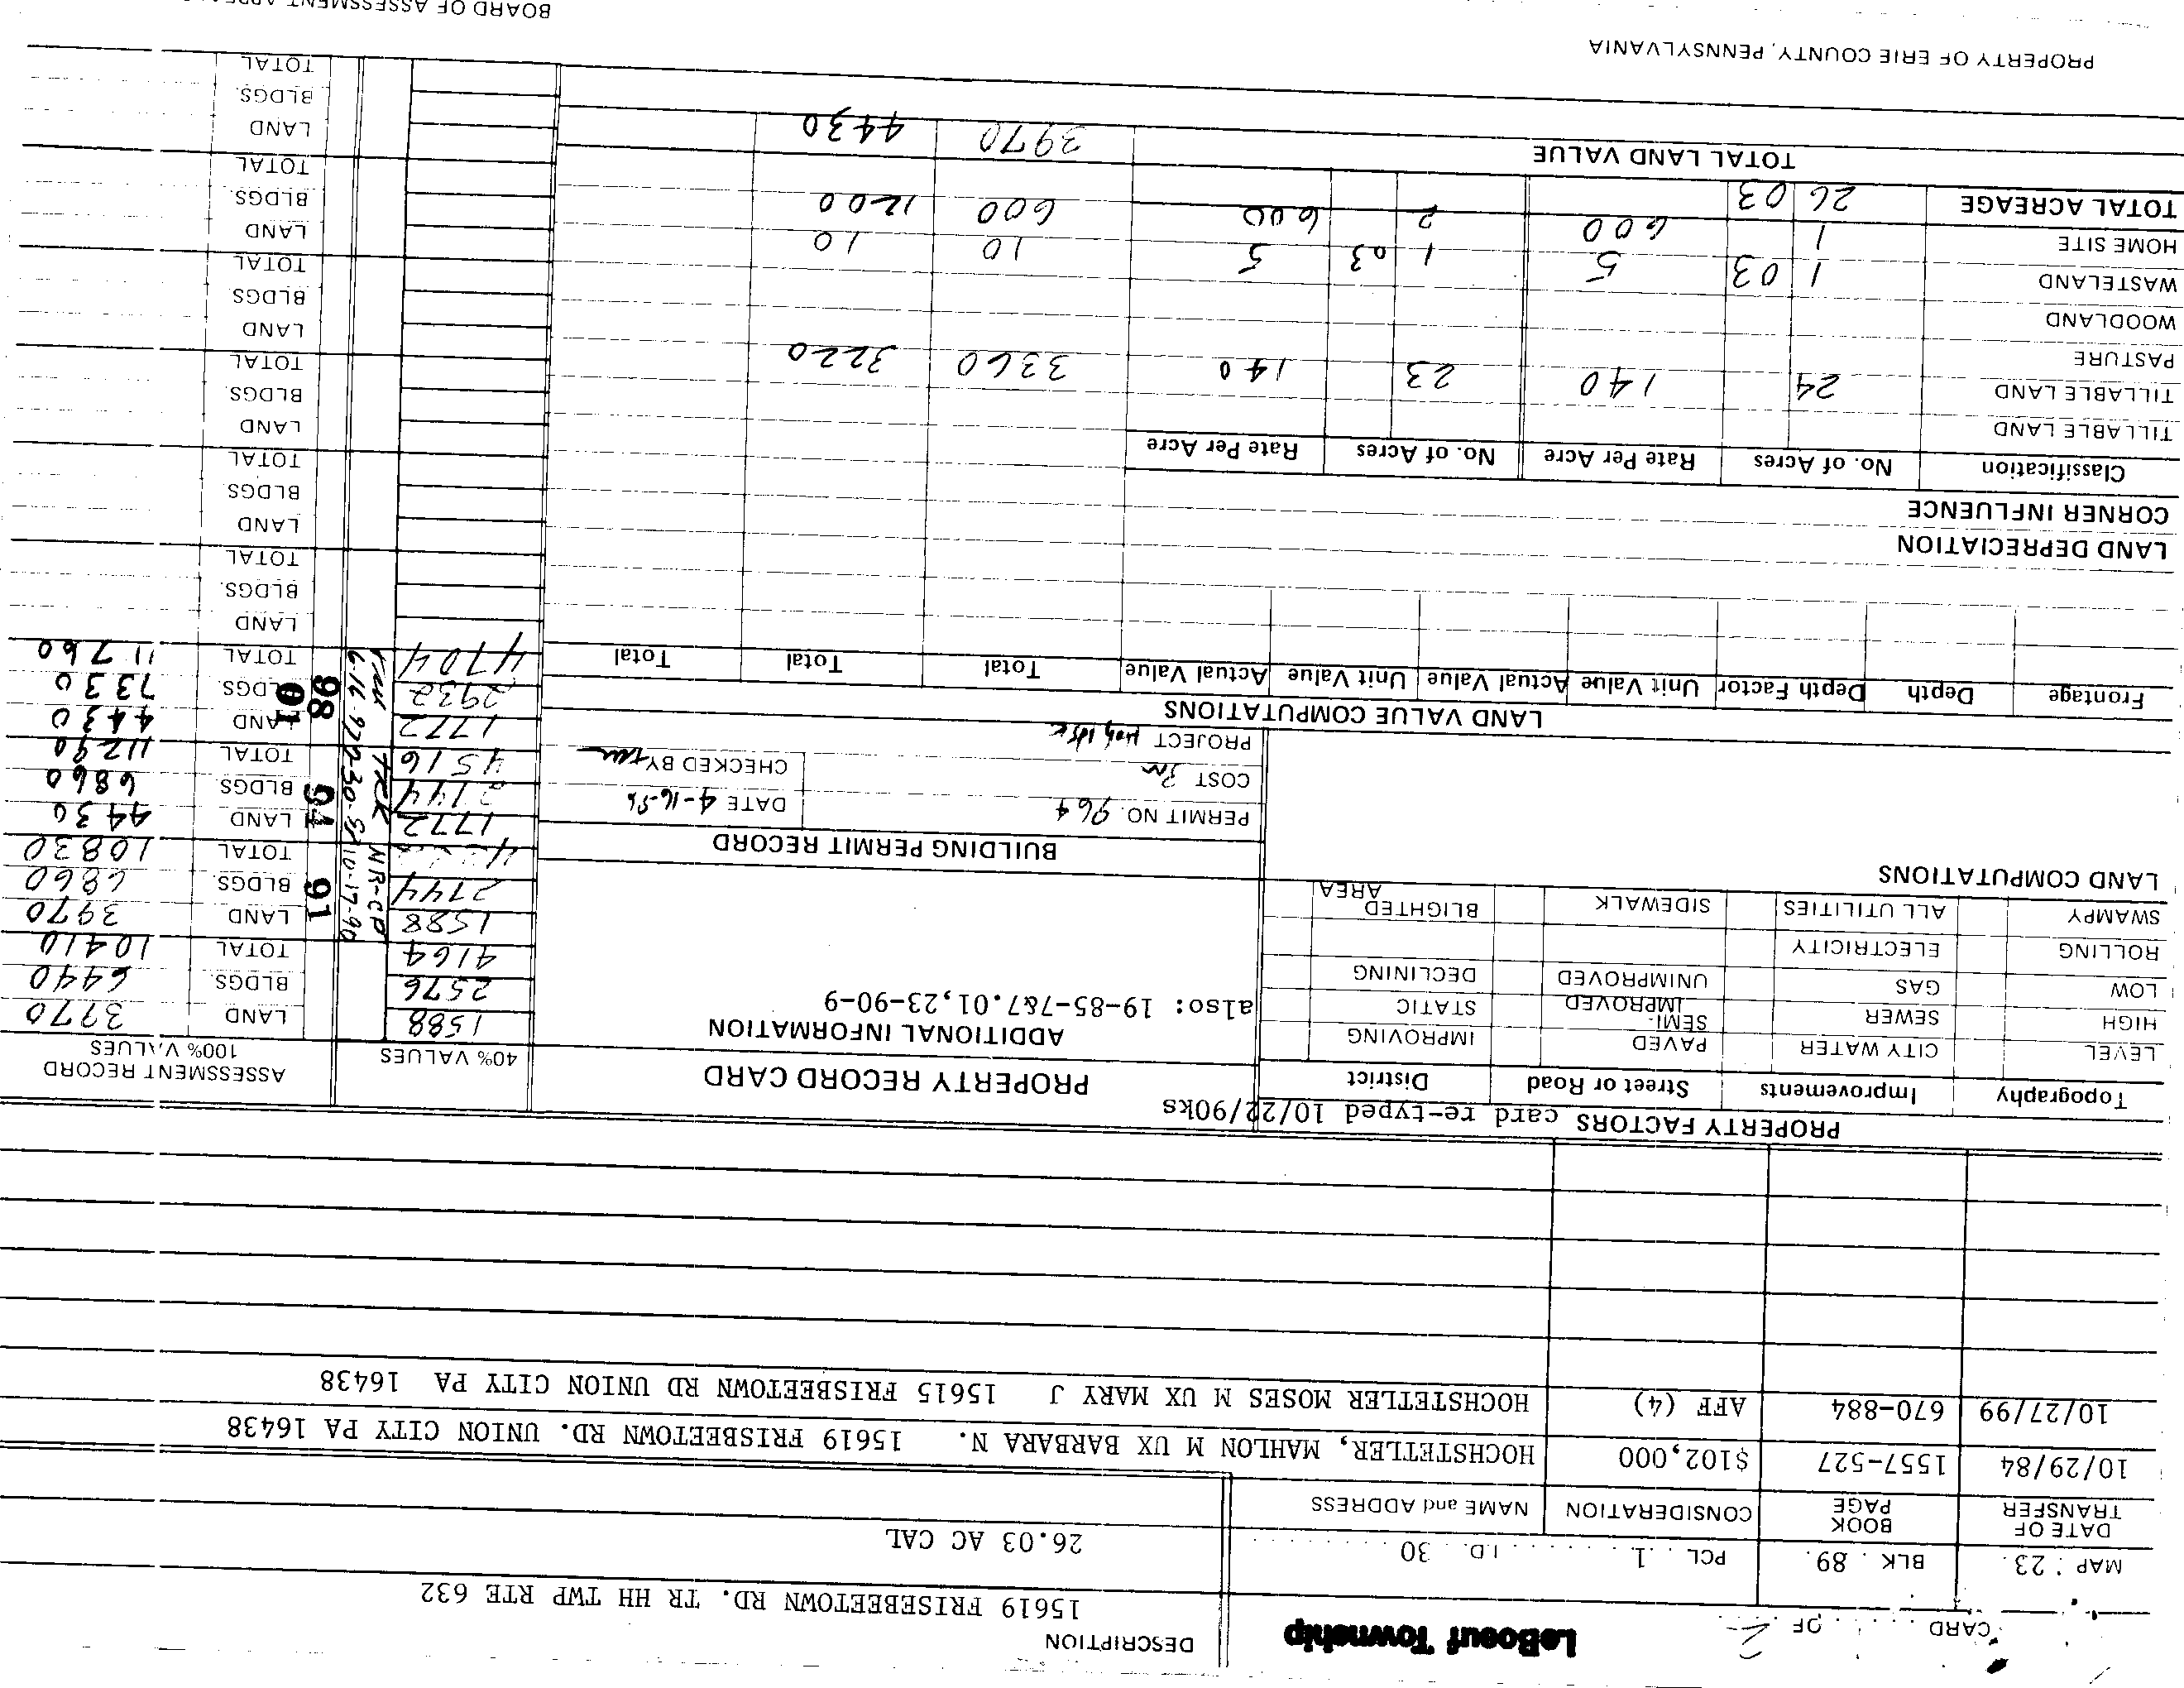 CARD OF 2
LeBoeuf Township
DESCRIPTION
15619 FRISEBEETOWN RD. TR HH TWP RTE 632
MAP 23 BLK 89 PCL 1 I.D. 30
26.03 AC CAL
DATE OF TRANSFER BOOK PAGE CONSIDERATION NAME and ADDRESS
10/29/84 1557-527 $102,000 HOCHSTETLER, MAHLON M UX BARBARA N. 15619 FRISBEETOWN RD. UNION CITY PA 16438
10/27/99 670-884 AFF (4) HOCHSTETLER MOSES M UX MARY J 15615 FRISBEETOWN RD UNION CITY PA 16438
PROPERTY FACTORS card re-typed 10/22/90ks
Topography Improvements Street or Road District
LEVEL CITY WATER PAVED IMPROVING
HIGH SEWER SEMI-IMPROVED STATIC
LOW GAS UNIMPROVED DECLINING
ROLLING ELECTRICITY
SWAMPY ALL UTILITIES SIDEWALK BLIGHTED AREA
LAND COMPUTATIONS
PROPERTY RECORD CARD
ADDITIONAL INFORMATION
also: 19-85-7&7.01,23-90-9
BUILDING PERMIT RECORD
PERMIT NO. 964 DATE 4-16-96
COST CHECKED BY
PROJECT
40% VALUES ASSESSMENT RECORD 100% VALUES
1588 LAND 3970
2576 BLDGS. 6440
4164 TOTAL 10410
1588 LAND 3970
2744 91 BLDGS 6860
TOTAL 10830
10-17-90 NR-CP
1772 LAND 4430
2744 94 BLDGS 6860
4516 TOTAL 11290
TRK
1772 LAND 4430
2932 98 01 BLDGS 7330
4704 TOTAL 11760
6-16-97
LAND
BLDGS.
TOTAL
LAND
BLDGS
TOTAL
LAND
BLDGS
TOTAL
LAND
BLDGS
TOTAL
LAND
BLDGS.
TOTAL
LAND
BLDGS.
TOTAL
LAND VALUE COMPUTATIONS
Frontage Depth Depth Factor Unit Value Actual Value Unit Value Actual Value Total Total Total
LAND DEPRECIATION
CORNER INFLUENCE
Classification No. of Acres Rate Per Acre No. of Acres Rate Per Acre
TILLABLE LAND
TILLABLE LAND 24 140 23 140 3360 3220
PASTURE
WOODLAND
WASTELAND 1 03 5 1 03 5 10 10
HOME SITE 1 600 2 600 600 1200
TOTAL ACREAGE 26 03
TOTAL LAND VALUE 3970 4430
PROPERTY OF ERIE COUNTY, PENNSYLVANIA
BOARD OF ASSESSMENT